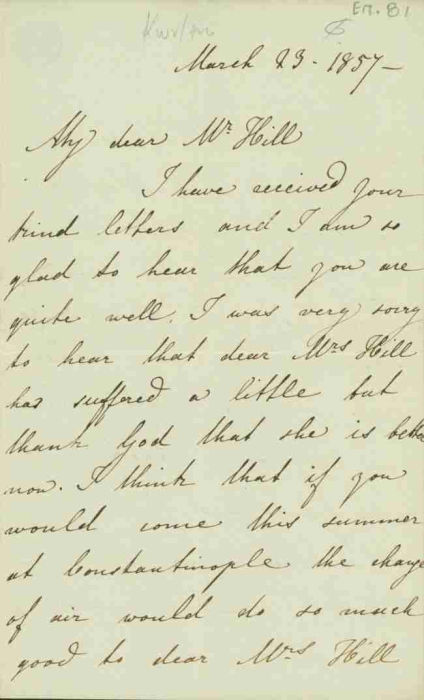 Em. 81
March 23. 1857—
My dear Mr. Hill
I have received your
kind letters and I am so
glad to hear that you are
quite well. I was very sorry
to hear that dear Mrs Hill
has suffered a little but
thank God that she is better
now. I think that if you
would come this summer
at Constantinople the change
of air would do so much
good to dear Mrs Hill